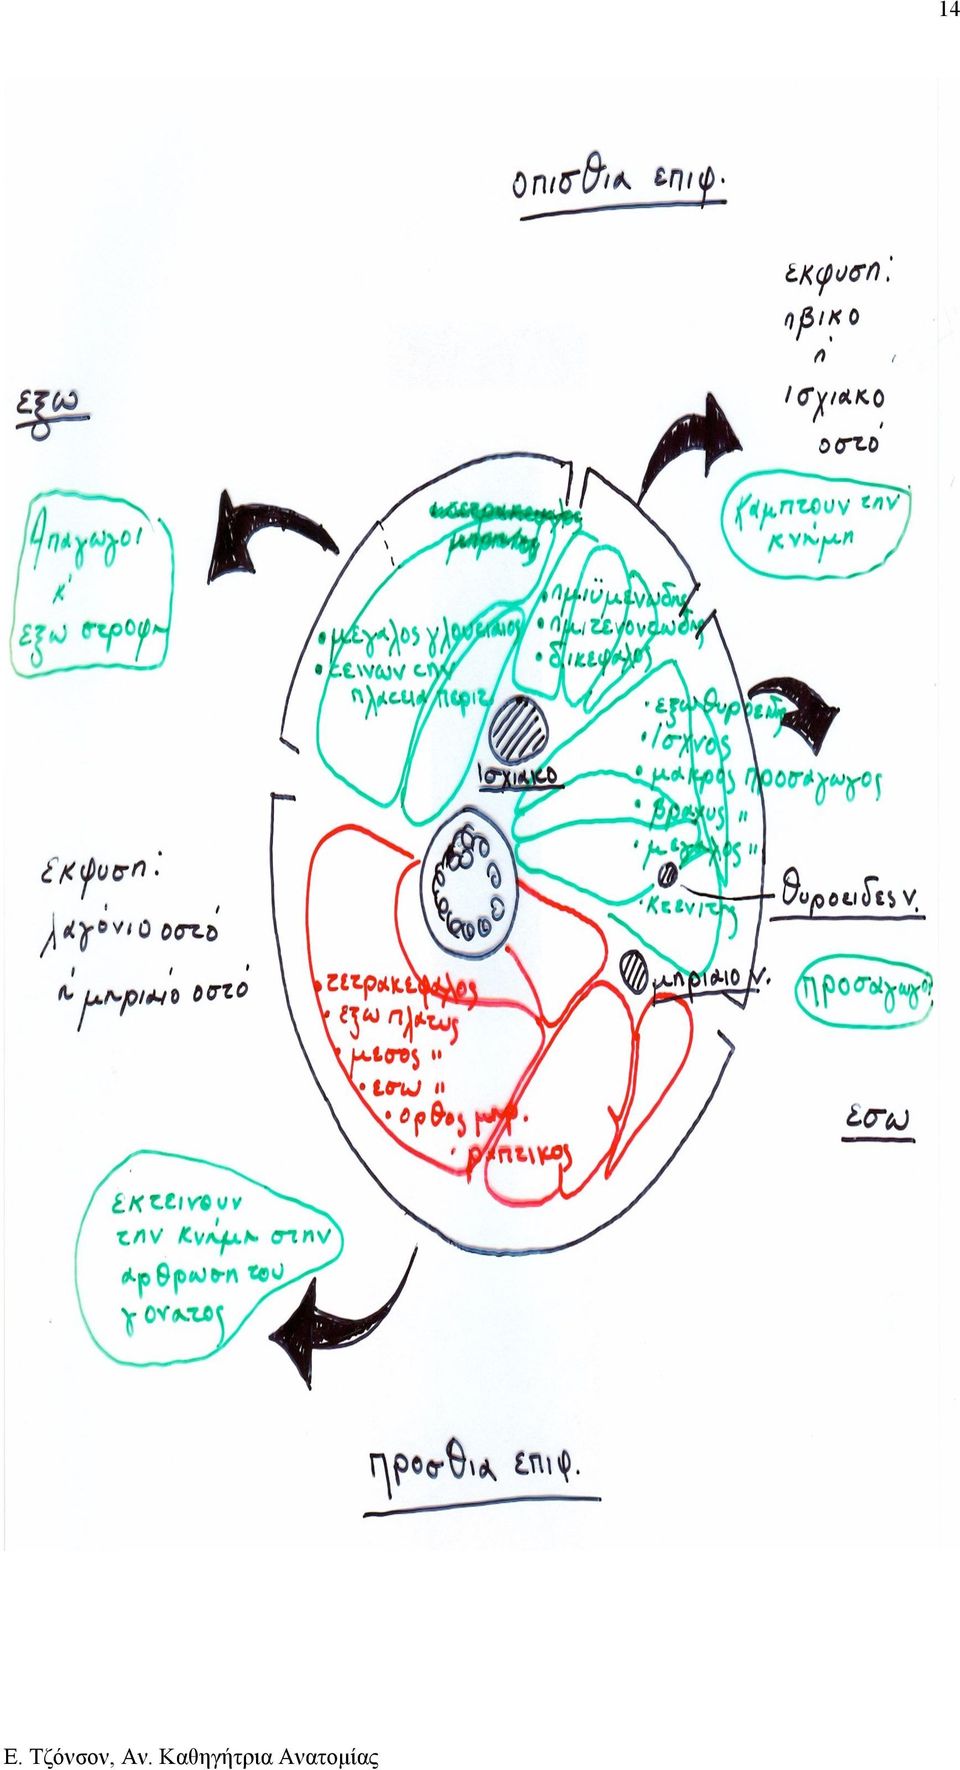 14
οπισθια επιφ.
εκφυση:
ηβικο
ή
Ισχιακο
οστό
εξω
Απαγωγοι
κ'
εξω στροφη
Κάμπτουν την
κνήμη
• μεγαλος γλουτιαιος
• τεινων την
πλατεια περιτ.
• ημιϋμενωδης
• ημιτενοντωδης
• δικεφαλος
Ισχιακο
• εξω θυροειδης
• Ισχνος
• μακρος προσαγωγος
• βραχυς "
• μεγαλος "
• κτενιτης
θυροειδες ν.
εκφυση:
λαγόνιο οστό
ή μηριαιό οστό
μηριαιο ν.
προσαγωγοι
• τετρακεφαλος
• εξω πλατυς
• μεσος "
• εσω "
• ορθος μηρ.
• ραπτικος
εσω
εκτεινουν
την κνήμη στην
αρθρωση του
γονατος
προσθια επιφ.
Ε. Τζόνσον, Αν. Καθηγήτρια Ανατομίας